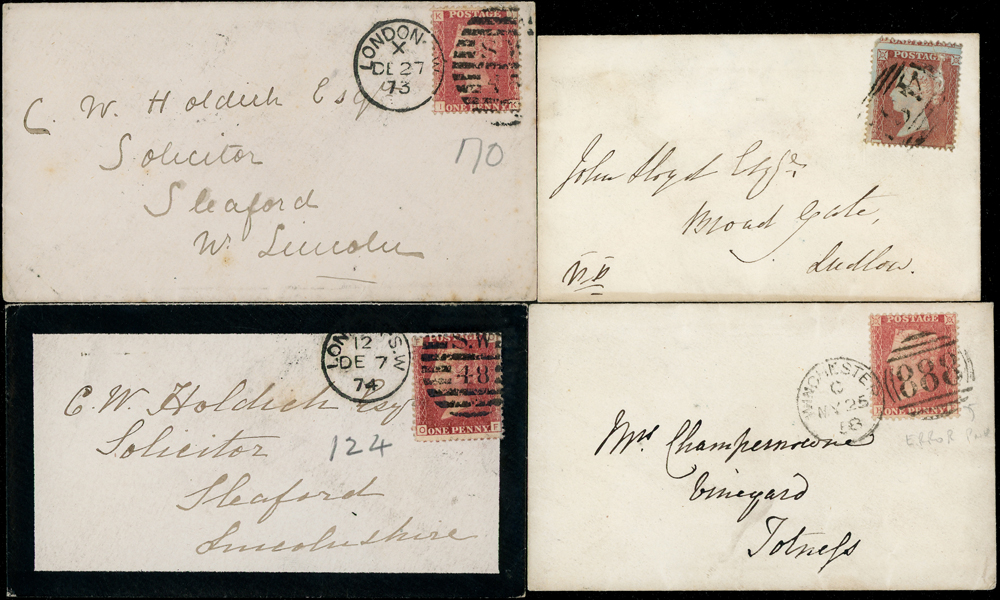 LONDON
X
DE 27
73
K
POSTAGE
I
ONE PENNY
K
C. W. Holdich Esq
Solicitor
Sleaford
W. Lincoln
170
POSTAGE
John Lloyd Esqre
Broad Gate,
Ludlow.
12
DE 7
74
S.W
48
O
ONE PENNY
F
C. W. Holdich Esq
Solicitor
Sleaford
Lincolnshire
124
WINCHESTER
C
MY 25
58
POSTAGE
888
ONE PENNY
ERROR
Mrs Champernowne
Vineyard
Totness